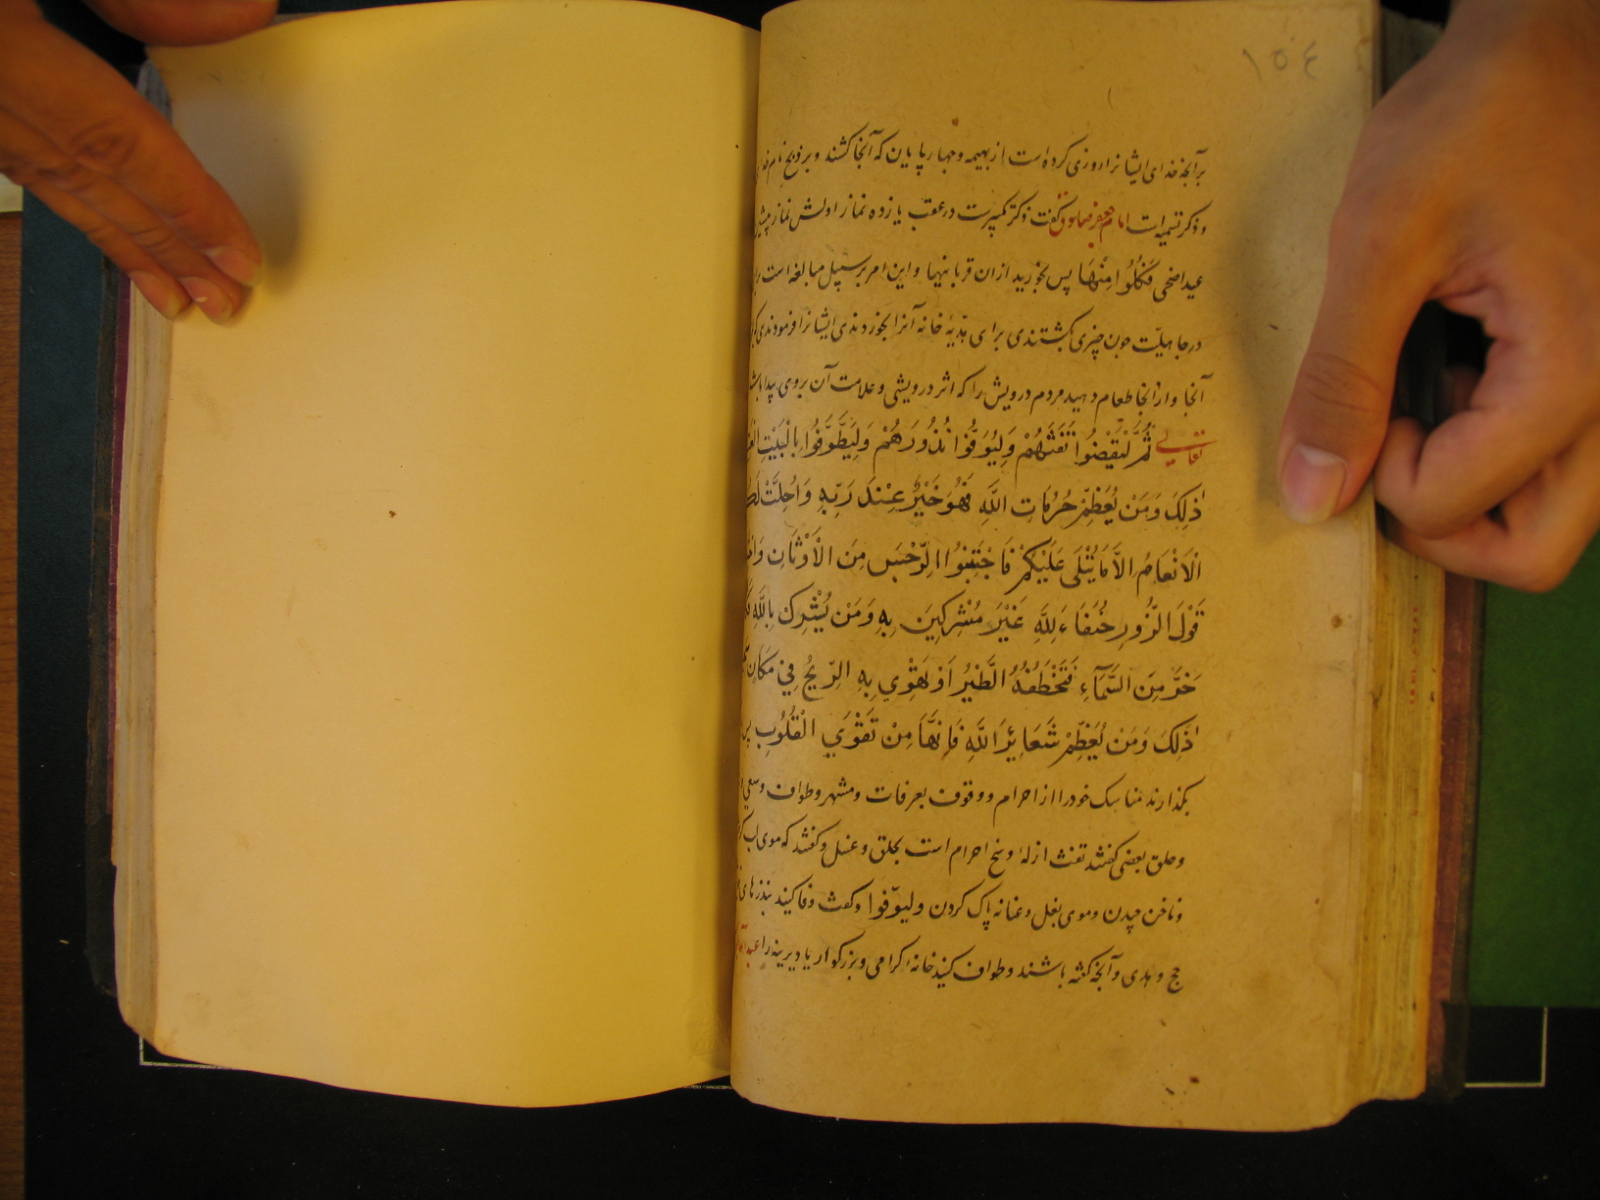 ١٥٤
بر آنچه خدای ایشانرا روزی کرده است از بهیمه و چهارپایان که آنجا کشند و بر ذبح نام
و ذکر تسمیه است امام جعفر صادق گفت ذکر تکبیرست در عقب یازده نماز اولش نماز
عید اضحی فَكُلُوا مِنْهَا پس بخورید ازان قربانیها و این امر بر سبیل مبالغه است
در جاهلیّت چون چیزی بکشتندی برای خانه آنرا بخوردندی ایشانرا فرمودند
آنجا و از آنجا طعام دهید مردم درویش را که اثر درویشی و علامت آن بروی پیدا
تعالی ثُمَّ لْيَقْضُوا تَفَثَهُمْ وَلْيُوفُوا نُذُورَهُمْ وَلْيَطَّوَّفُوا بِالْبَيْتِ
ذٰلِكَ وَمَنْ يُعَظِّمْ حُرُمَاتِ اللَّهِ فَهُوَ خَيْرٌ عِنْدَ رَبِّهِ وَاُحِلَّتْ
الْاَنْعَامُ اِلَّا مَا يُتْلَى عَلَيْكُمْ فَاجْتَنِبُوا الرِّجْسَ مِنَ الْاَوْثَانِ
قَوْلَ الزُّورِ حُنَفَاءَ لِلَّهِ غَيْرَ مُشْرِكِينَ بِهِ وَمَنْ يُشْرِكْ بِاللَّهِ
خَرَّ مِنَ السَّمَآءِ فَتَخْطَفُهُ الطَّيْرُ اَوْ تَهْوِي بِهِ الرِّيحُ فِي مَكَانٍ
ذٰلِكَ وَمَنْ يُعَظِّمْ شَعَائِرَ اللَّهِ فَاِنَّهَا مِنْ تَقْوَي الْقُلُوبِ پس
بگذارند مناسک خود را از احرام و وقوف بعرفات و مشهر و طواف و سعی
و حلق بعضی گفتند تفث ازلهٔ وسخ احرام است بحلق و غسل و گفتند که موی لب
و ناخن چیدن و موی بغل و عانه پاک کردن وليوّفوا و گفت وفا کنید بنذرهای
حج و هدی و آنچه گفته باشند و طواف کنید خانهٔ گرامی و بزرگوار یا دیرینه را